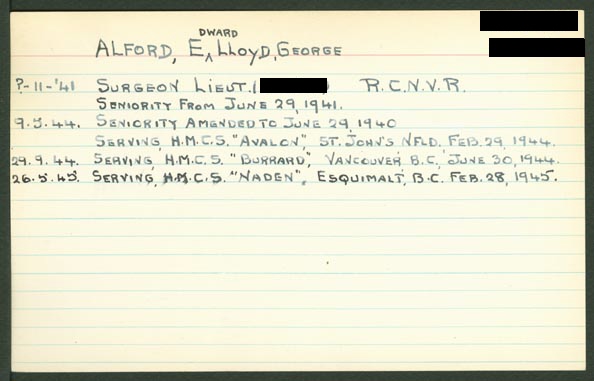 DWARD
ALFORD, E^ LLOYD, GEORGE
?-11-'41 SURGEON LIEUT. ( ) R.C.N.V.R.
SENIORITY FROM JUNE 29, 1941.
9.5.44. SENIORITY AMENDED TO JUNE 29, 1940
SERVING, H.M.C.S. "AVALON", ST. JOHN'S NFLD, FEB. 29, 1944.
29.9.44. SERVING, H.M.C.S. "BURRARD", VANCOUVER, B.C, JUNE 30, 1944.
26.5.45. SERVING, H.M.C.S. "NADEN", ESQUIMALT, B.C. FEB. 28, 1945.